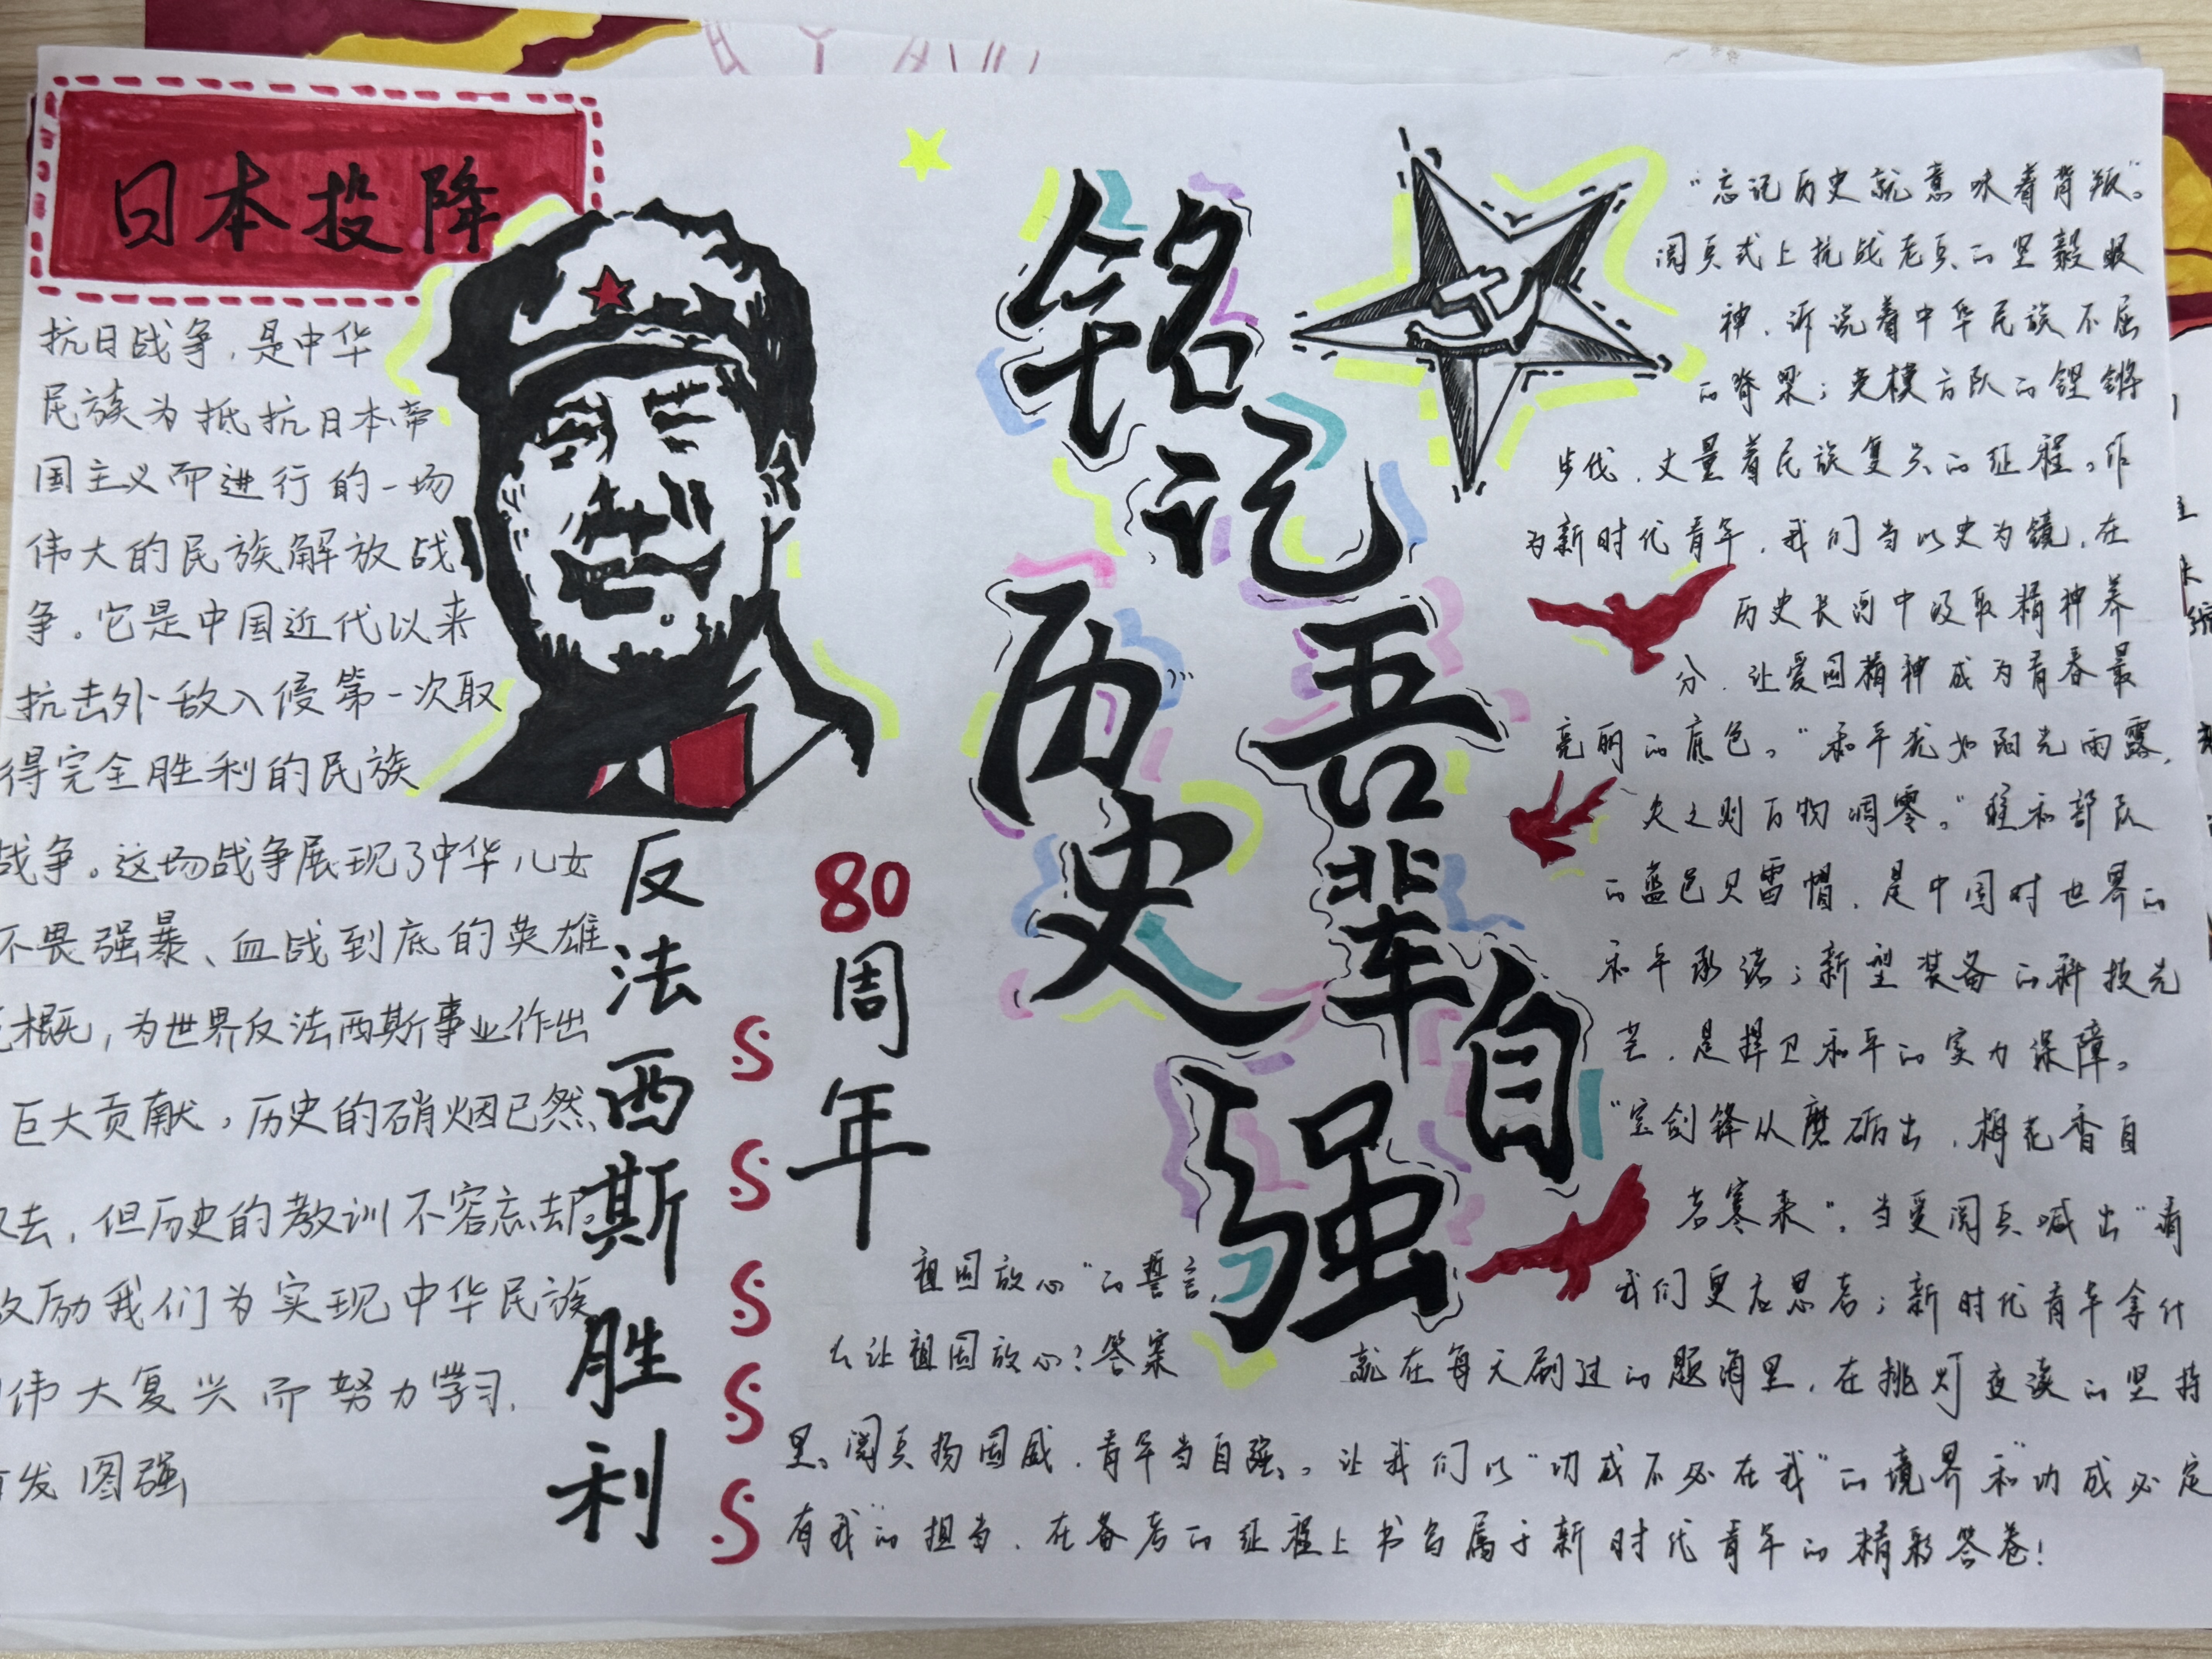 日本投降
抗日战争,是中华
民族为抵抗日本帝
国主义而进行的一场
伟大的民族解放战
争。它是中国近代以来
抗击外敌入侵第一次取
得完全胜利的民族
战争。这场战争展现了中华儿女
不畏强暴、血战到底的英雄
气概,为世界反法西斯事业作出
巨大贡献,历史的硝烟已然
去,但历史的教训不容忘却。
励我们为实现中华民族
伟大复兴而努力学习,
发图强
反法西斯胜利
80周年
铭记历史
吾辈自强
“忘记历史就意味着背叛”。
阅兵式上抗战老兵的坚毅眼
神,诉说着中华民族不屈
的脊梁;英模方队的铿锵
步伐,丈量着民族复兴的征程。作
为新时代青年,我们当以史为镜,在
历史长河中吸取精神养
分,让爱国精神成为青春最
亮丽的底色。“和平犹如阳光雨露,
失之则百物凋零。”维和部队
的蓝色贝雷帽,是中国对世界的
和平承诺;新型装备的科技光
芒,是捍卫和平的实力保障。
“宝剑锋从磨砺出,梅花香自
苦寒来”。当受阅兵喊出“请
祖国放心”的誓言,
我们更应思考;新时代青年拿什
么让祖国放心?答案
就在每天刷过的题海里,在挑灯夜读的坚持
里。阅兵扬国威,青年当自强。让我们以“功成不必在我”的境界和“功成必定
有我”的担当,在备考的征程上书写属于新时代青年的精彩答卷!